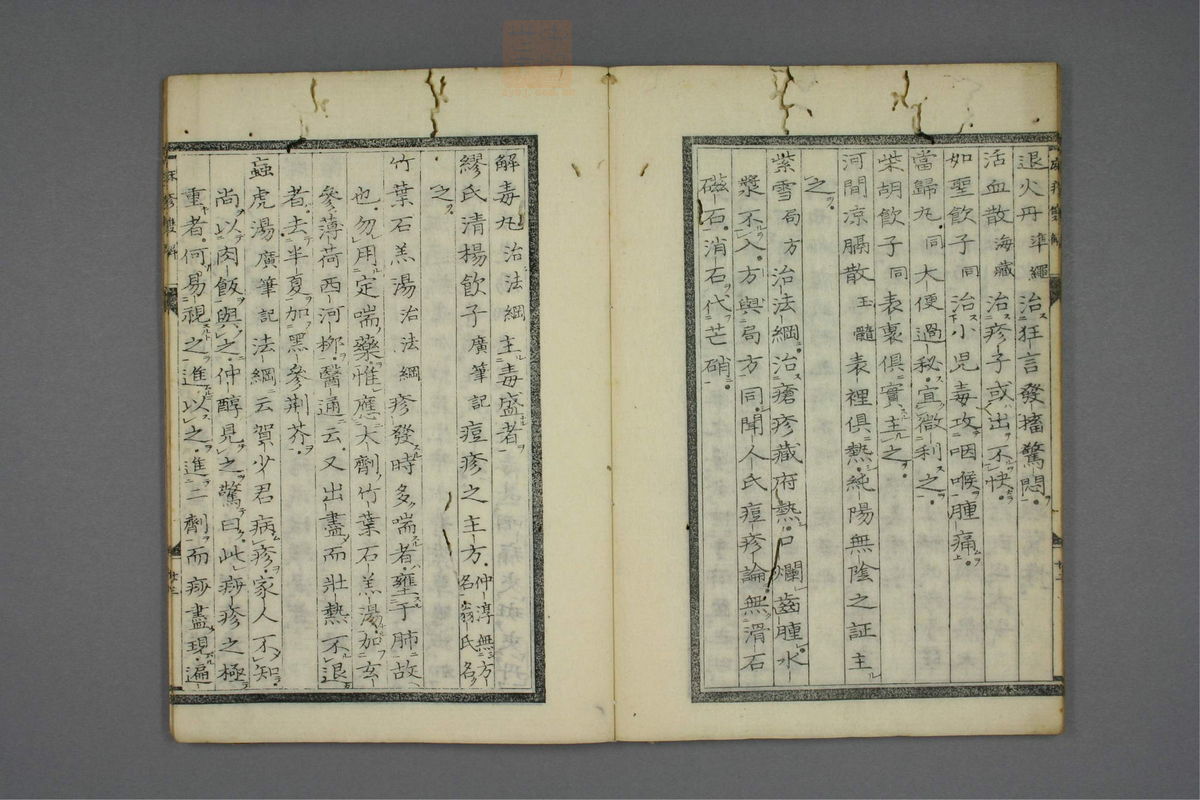 退火丹準繩治狂言發搐驚悶
活血散海藏治疹子或出不快
如聖飲子同治小児毒攻咽喉腫痛
當歸丸同大便過秘宜微利之
柴胡飲子同表裏俱實主之
河間凉膈散玉髓表裡俱熱純陽無陰之証主
之
紫雪局方治法綱治瘡疹藏府熱口爛齒腫水
漿不入方與局方同聞人氏痘疹論無滑石
磁石消石代芒硝
解毒丸治法綱主毒盛者
繆氏清楊飲子廣筆記痘疹之主方仲淳無方名翁氏名
之
竹葉石羔湯治法綱疹發時多喘者壅于肺故
也勿用定喘藥惟應大劑竹葉石羔湯加玄
參薄荷西河柳醫通云又出盡而壯熱不退
者去半夏加黑參荆芥
蟲虎湯廣筆記法綱云賀少君病疹家人不知
尚以肉飯與之仲醇見之驚曰此痧疹之極
重者何易視之進以之進二劑而痧盡現遍